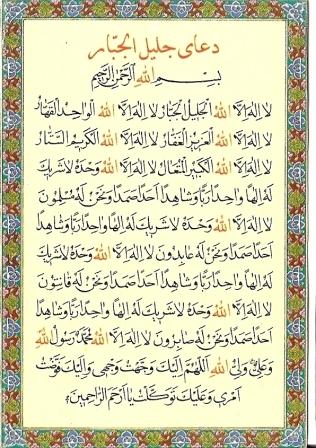 دعای جلیل الجبّار
بِسْمِ اللهِ الرَّحْمٰنِ الرَّحِيمِ
لا اِلٰهَ اِلاَّ اللهُ الْجَليلُ الْجَبّارُ لا اِلٰهَ اِلاَّ اللهُ الْواحِدُ الْقَهّارُ
لا اِلٰهَ اِلاَّ اللهُ الْعَزيزُ الْغَفّارُ لا اِلٰهَ اِلاَّ اللهُ الْكَريمُ السَّتّارُ
لا اِلٰهَ اِلاَّ اللهُ الْكَبيرُ الْمُتَعالُ لا اِلٰهَ اِلاَّ اللهُ وَحْدَهُ لا شَريكَ
لَهُ اِلٰهاً واحِداً رَبّاً وَشاهِداً اَحَداً صَمَداً وَنَحْنُ لَهُ مُسْلِمُونَ
لا اِلٰهَ اِلاَّ اللهُ وَحْدَهُ لا شَريكَ لَهُ اِلٰهاً واحِداً رَبّاً وَشاهِداً
اَحَداً صَمَداً وَنَحْنُ لَهُ عابِدُونَ لا اِلٰهَ اِلاَّ اللهُ وَحْدَهُ لا شَريكَ
لَهُ اِلٰهاً واحِداً رَبّاً وَشاهِداً اَحَداً صَمَداً وَنَحْنُ لَهُ قانِتُونَ
لا اِلٰهَ اِلاَّ اللهُ وَحْدَهُ لا شَريكَ لَهُ اِلٰهاً واحِداً رَبّاً وَشاهِداً
اَحَداً صَمَداً وَنَحْنُ لَهُ صابِرُونَ لا اِلٰهَ اِلاَّ اللهُ مُحَمَّدٌ رَسُولُ اللهِ
وَعَلِيٌّ وَلِيُّ اللهِ اَللّٰهُمَّ اِلَيْكَ وَجَّهْتُ وَجْهي وَاِلَيْكَ فَوَّضْتُ
اَمْري وَعَلَيْكَ تَوَكَّلْتُ يا اَرْحَمَ الرّاحِمينَ